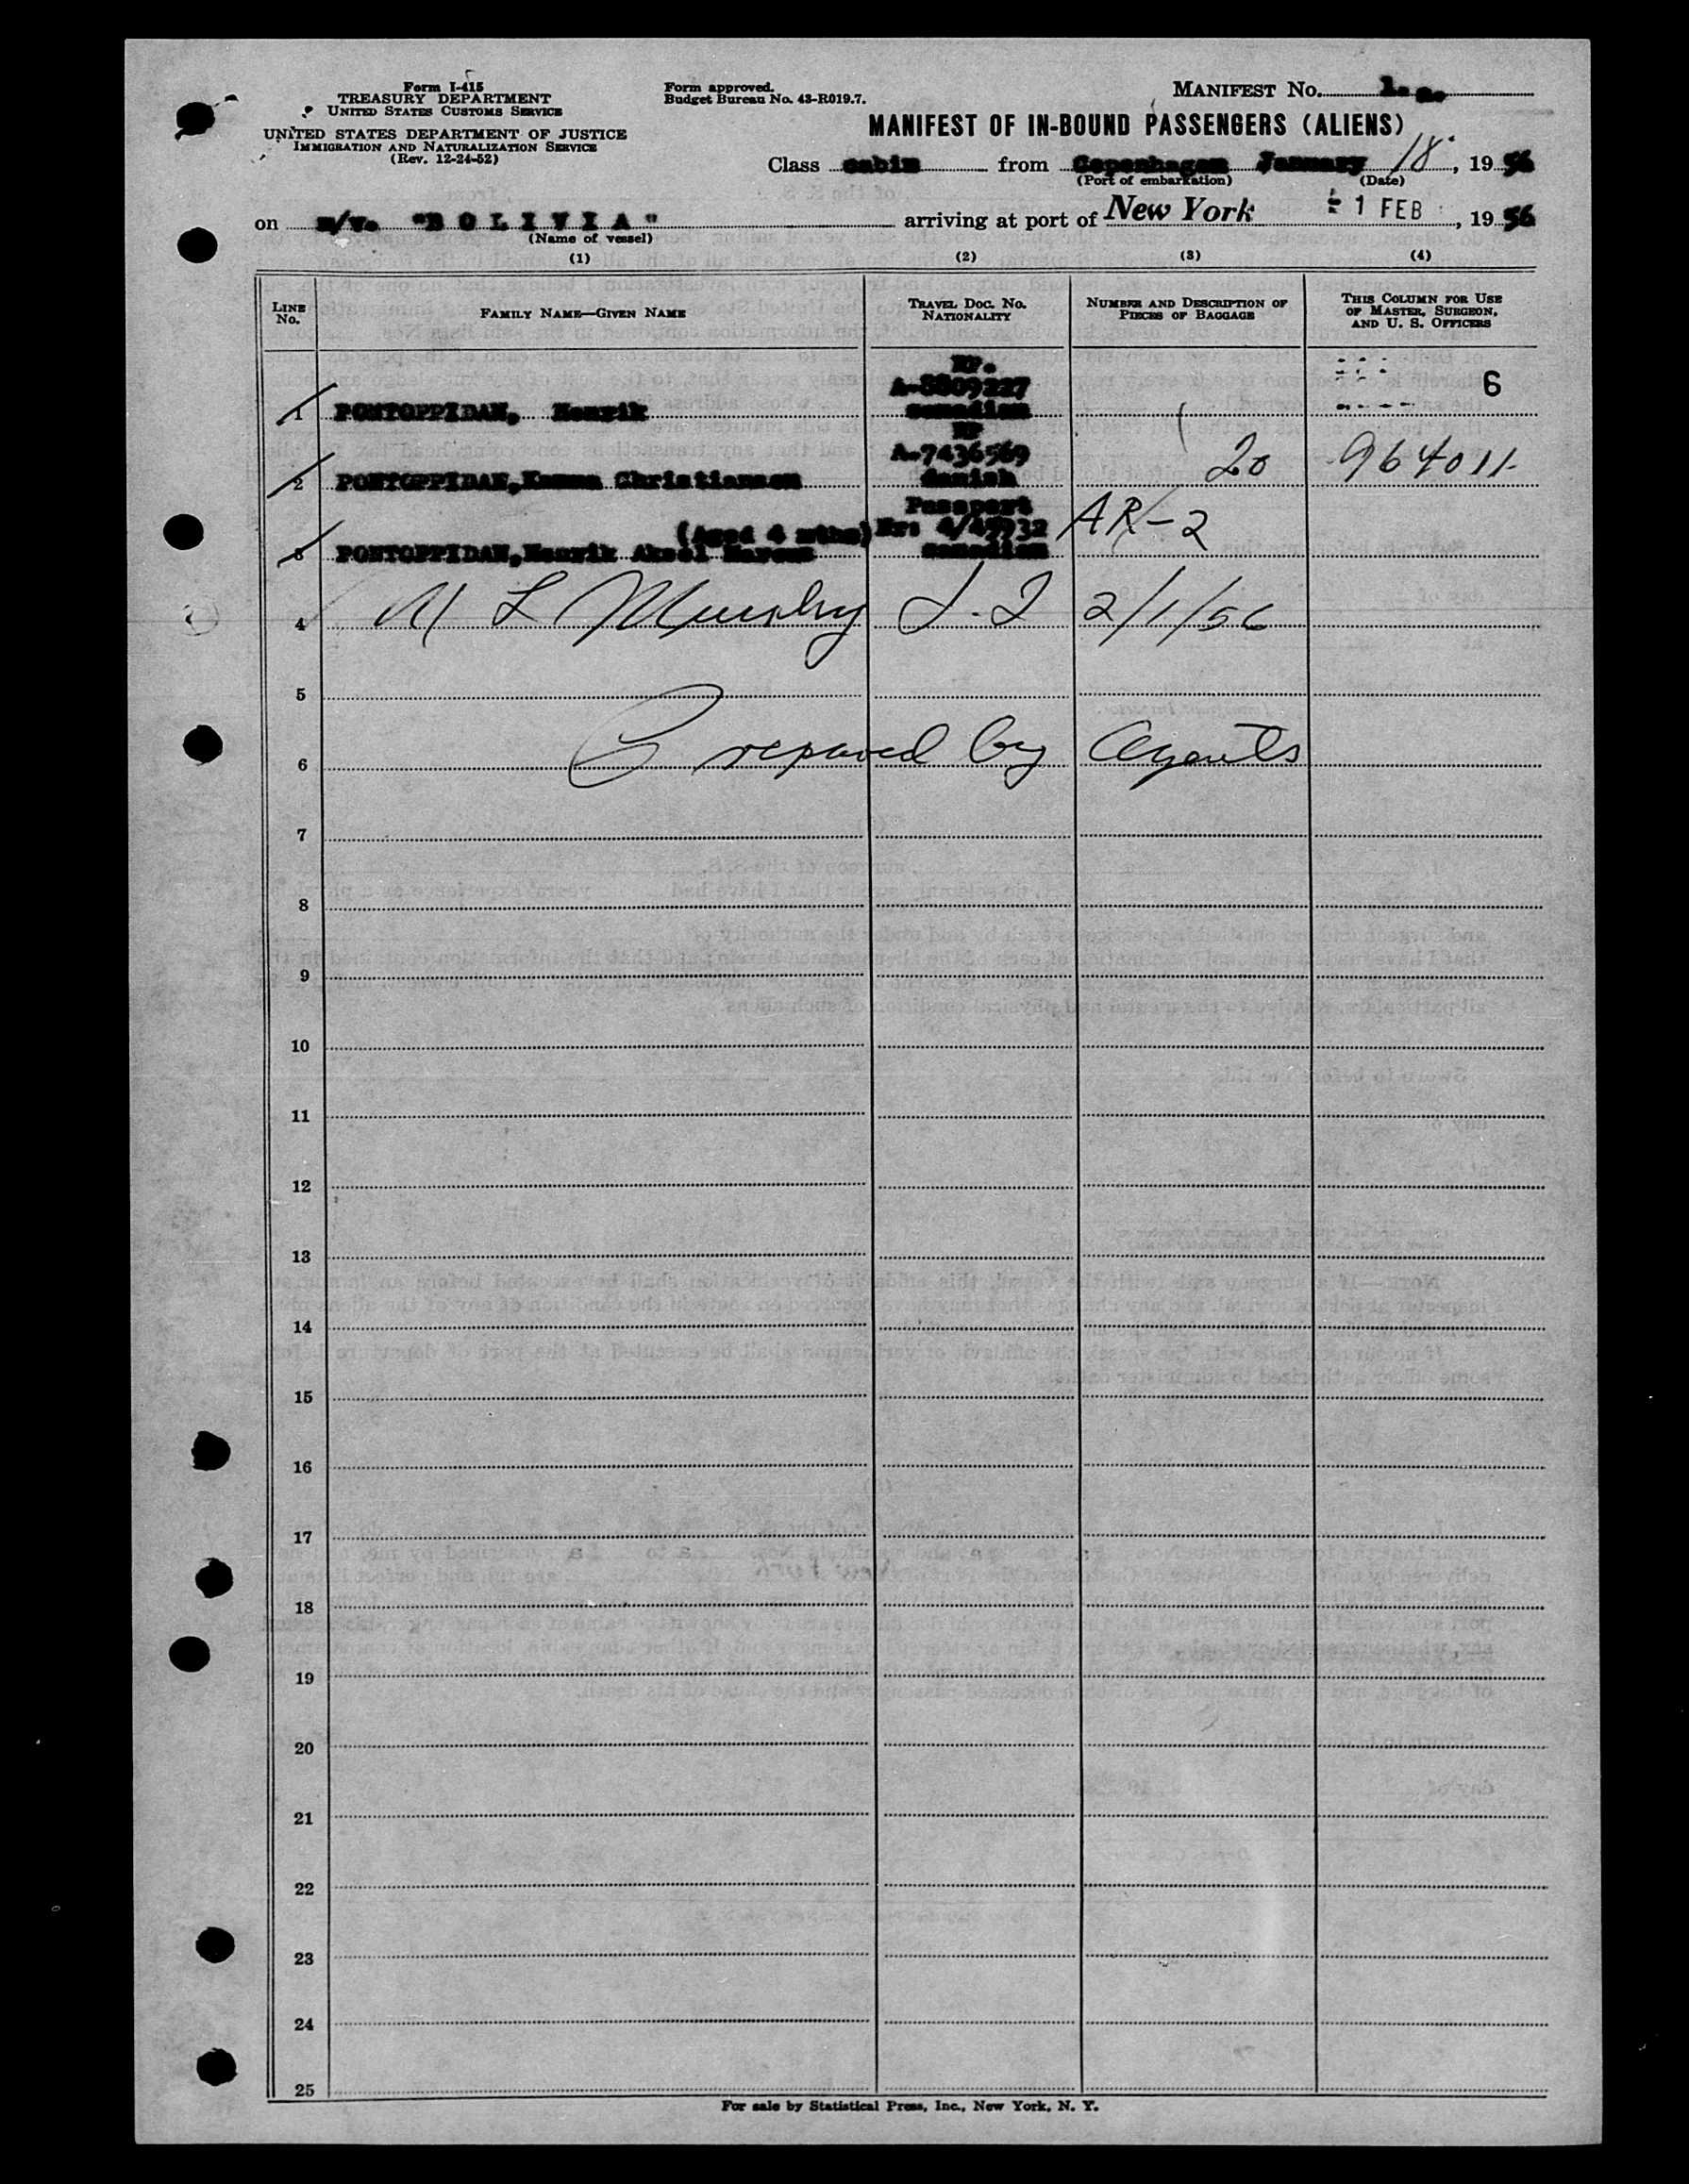 Form I-415
TREASURY DEPARTMENT
UNITED STATES CUSTOMS SERVICE
UNITED STATES DEPARTMENT OF JUSTICE
IMMIGRATION AND NATURALIZATION SERVICE
(Rev. 12-24-52)
Form approved.
Budget Bureau No. 43-R019.7.
MANIFEST No.
MANIFEST OF IN-BOUND PASSENGERS (ALIENS)
Class cabin from Copenhagen January 18, 1956
(Port of embarkation) (Date)
on m/v. "B O L I V I A" arriving at port of New York 1 FEB, 1956
(Name of vessel)
(1) (2) (3) (4)
LINE No. FAMILY NAME—GIVEN NAME TRAVEL DOC. NO. NATIONALITY NUMBER AND DESCRIPTION OF PIECES OF BAGGAGE THIS COLUMN FOR USE OF MASTER, SURGEON, AND U. S. OFFICERS
RP.
A-8809227 6
1 PONTOPPIDAN, Henrik canadian
RP
A-7436569
2 PONTOPPIDAN, Christiansen danish 20 964011
Passport
(Aged 4 mths) Nr: 4/45932 AR-2
3 PONTOPPIDAN, Henrik Aksel Marcus canadian
4 L Murphy 2/1/56
5
6 Prepared by Agents
7
8
9
10
11
12
13
14
15
16
17
18
19
20
21
22
23
24
25
For sale by Statistical Press, Inc., New York, N. Y.